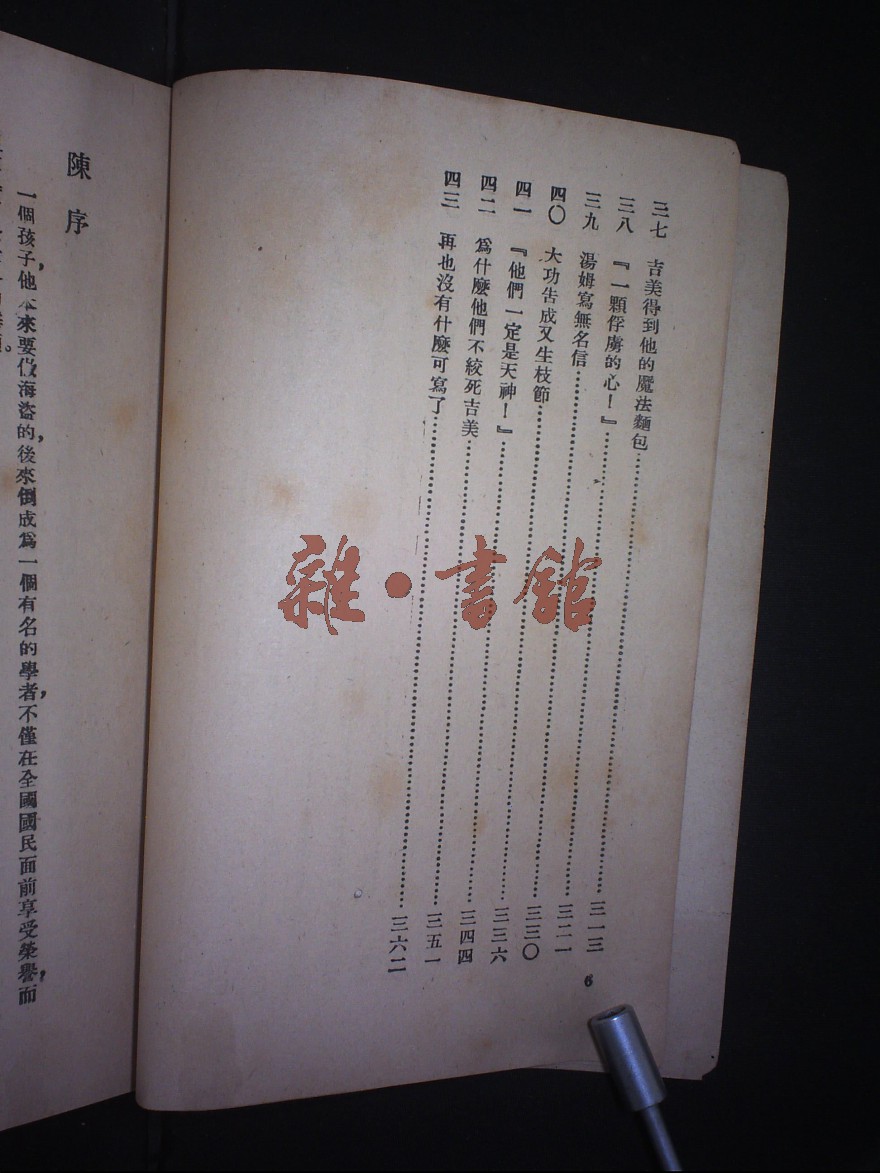 三七 吉美得到他的魔法麵包……三一三
三八 『一顆俘虜的心！』……三二一
三九 湯姆寫無名信……三三〇
四〇 大功告成又生枝節……三三六
四一 『他們一定是天神！』……三四四
四二 爲什麼他們不絞死吉美……三五一
四三 再也沒有什麼可寫了……三六二
6
雜·書館
陳序
一個孩子，他本來要做海盜的，後來倒成爲一個有名的學者，不僅在全國國民面前享受榮譽，而